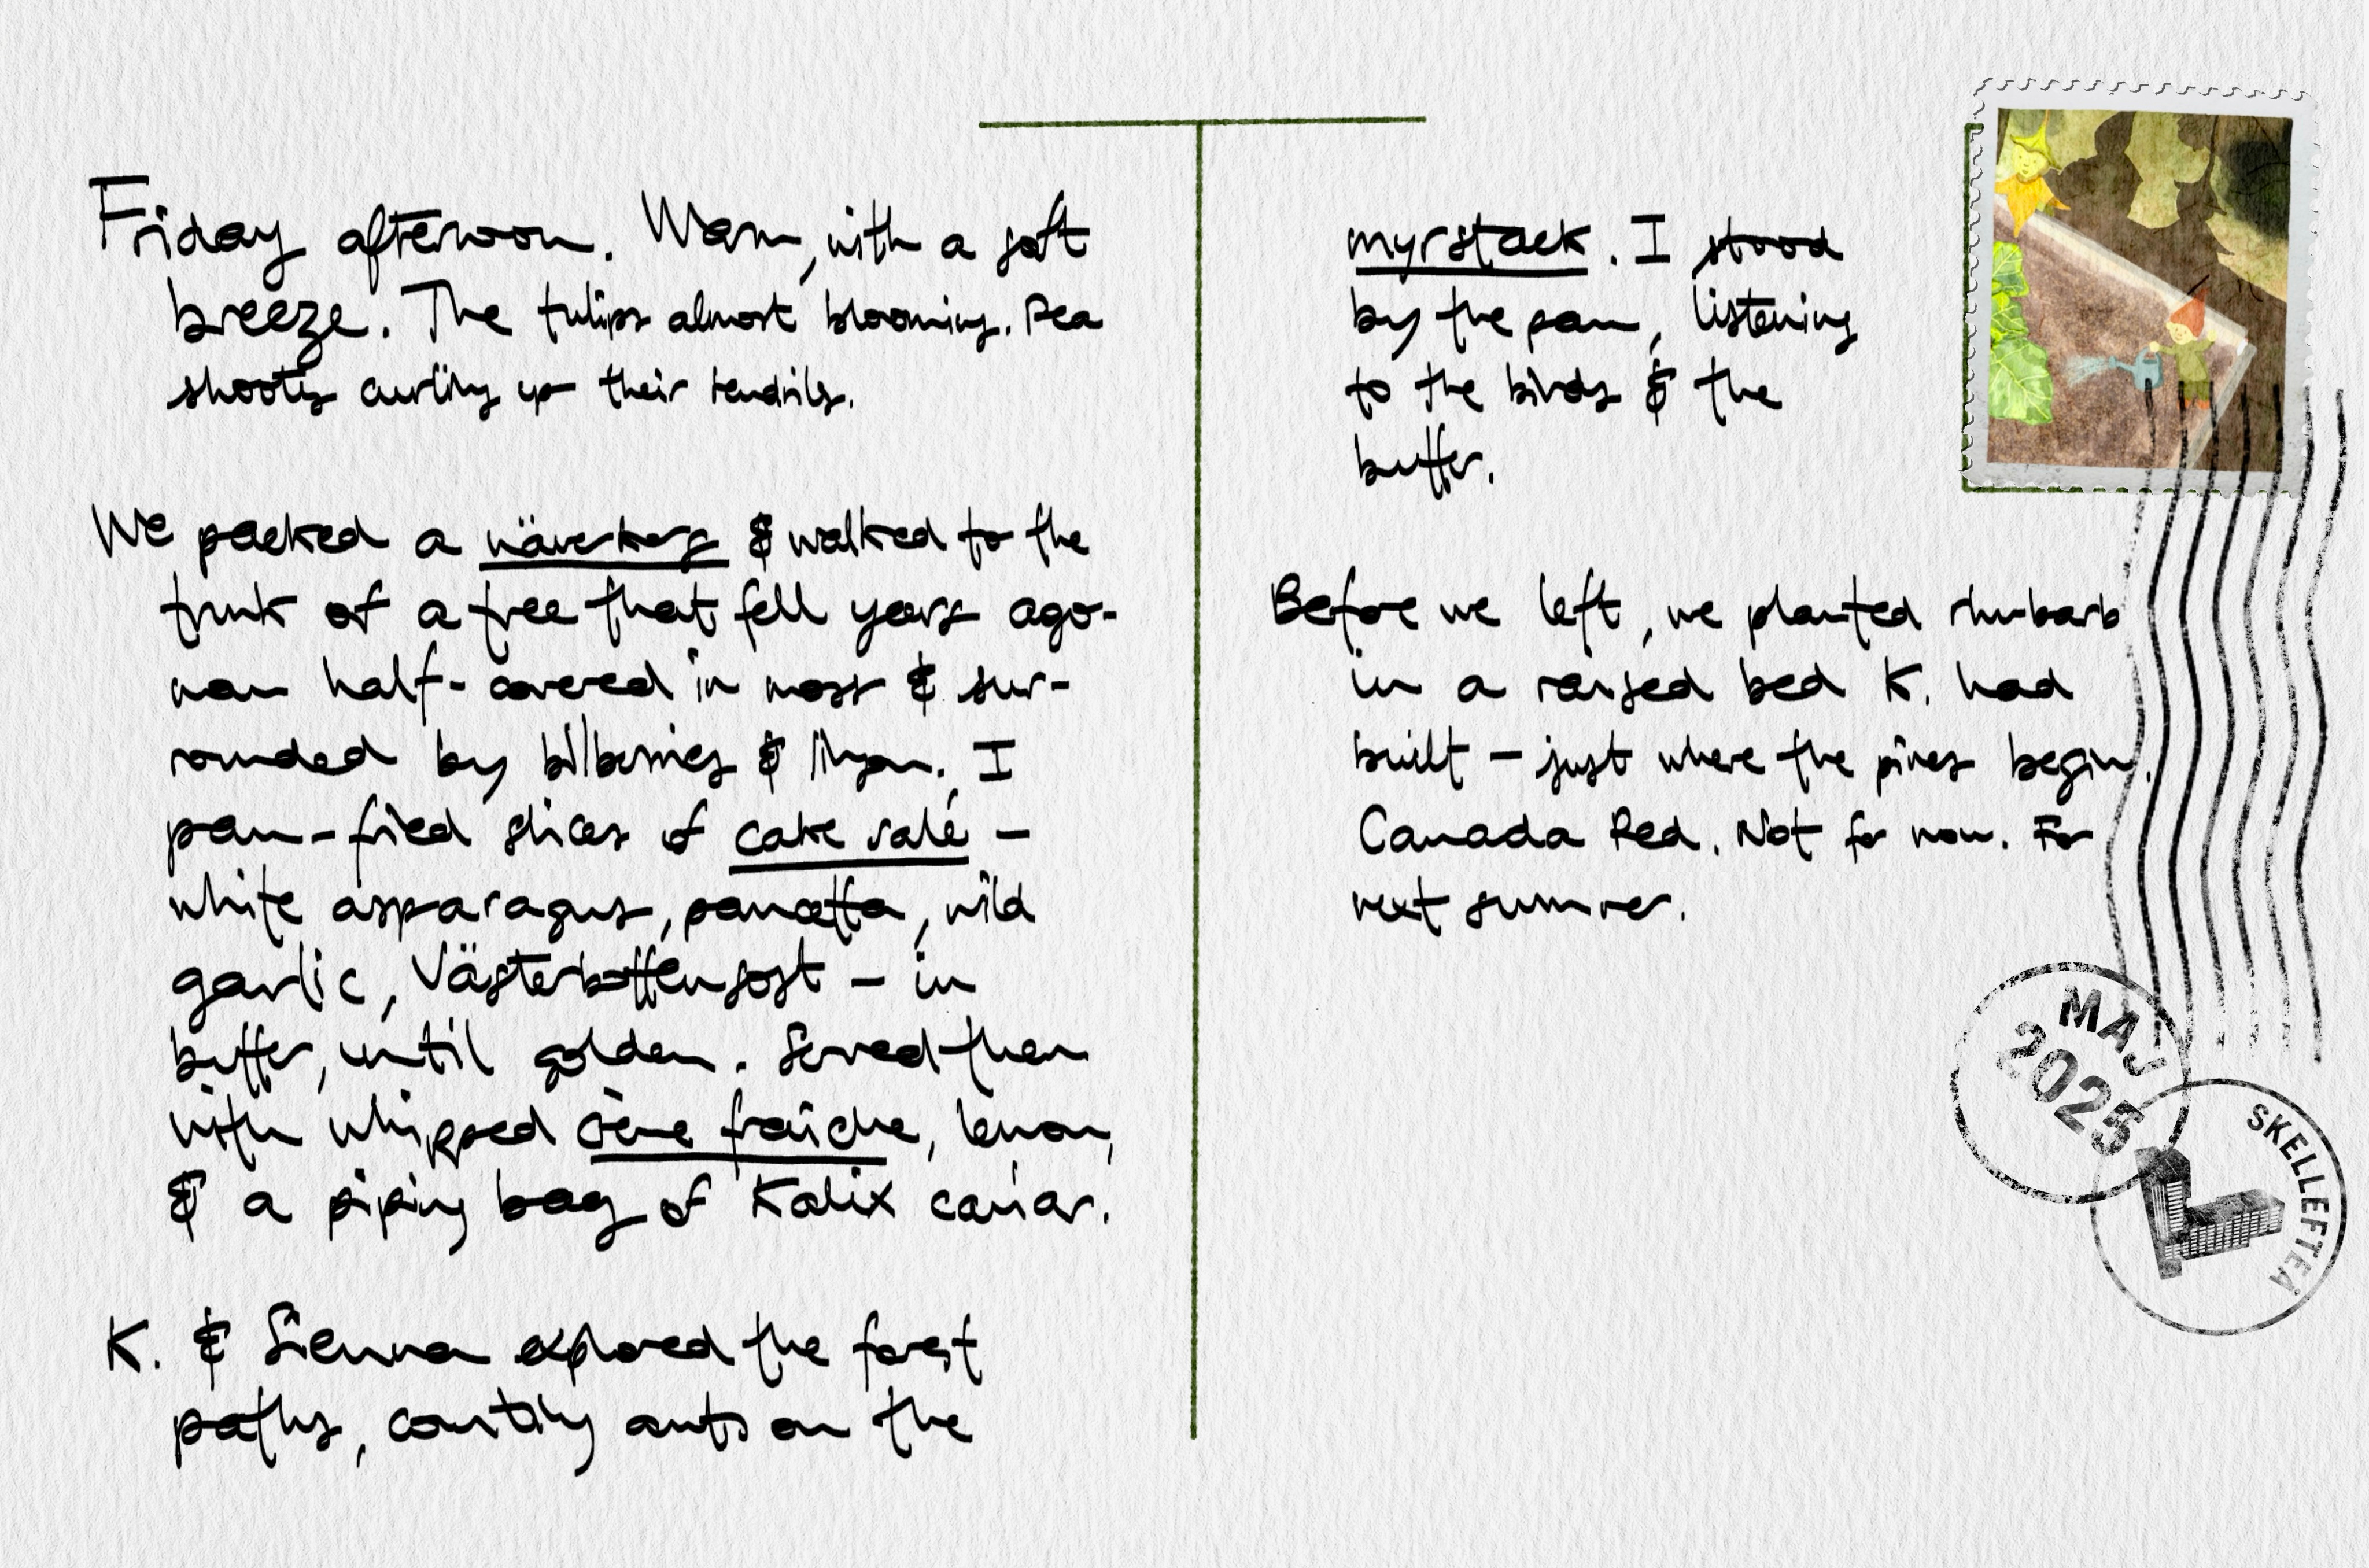 Friday afternoon. Warm, with a soft
breeze. The tulips almost blooming. Pea
shoots curling up their tendrils.
We packed a näverkorg & walked to the
trunk of a tree that fell years ago -
now half-covered in moss & sur-
rounded by bilberries & lingon. I
pan-fried slices of cake salé -
white asparagus, pancetta, wild
garlic, Västerbottensost - in
butter, until golden. Served them
with whipped crème fraîche, lemon,
& a piping bag of Kalix caviar.
K. & Sienna explored the forest
paths, counting ants on the
myrstack. I stood
by the pan, listening
to the birds & the
butter.
Before we left, we planted rhubarb
in a raised bed K. had
built - just where the pines begin.
Canada Red. Not for now. For
next summer.
MAJ
2025
SKELLEFTEÅ